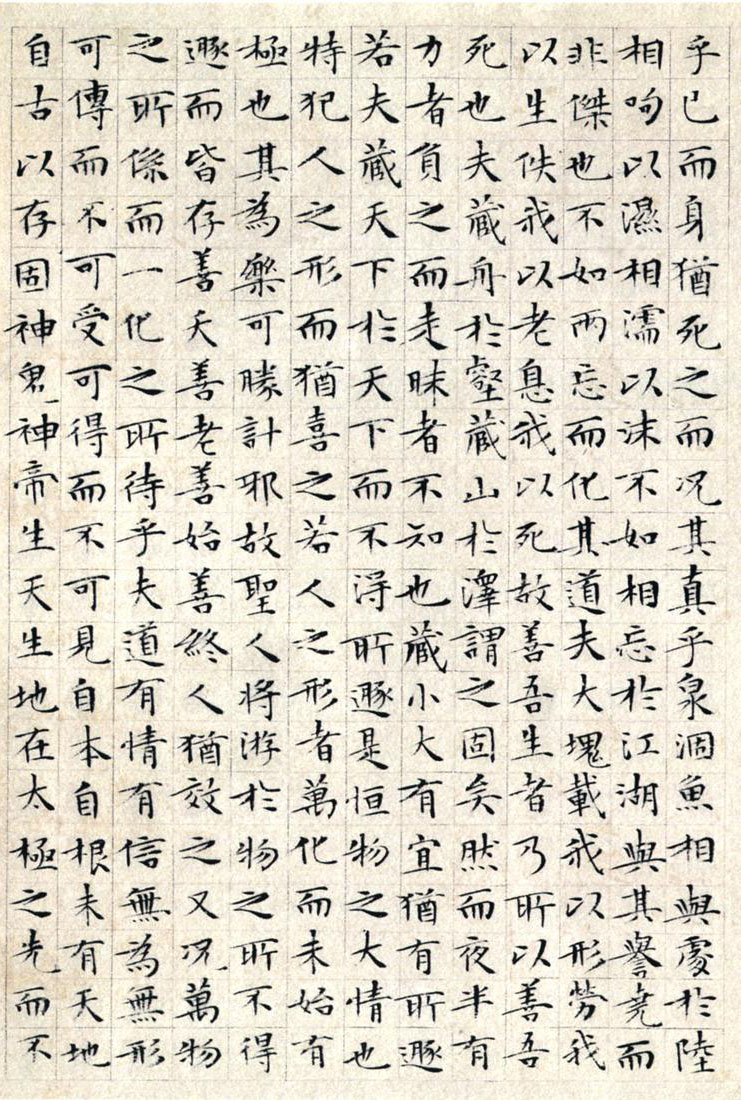 乎已而身猶死之而况其真乎泉涸魚相與處於陸
相呴以濕相濡以沫不如相忘於江湖與其譽堯而
非傑也不如兩忘而化其道夫大塊載我以形勞我
以生佚我以老息我以死故善吾生者乃所以善吾
死也夫藏舟於壑藏山於澤謂之固矣然而夜半有
力者負之而走昧者不知也藏小大有宜猶有所遯
若夫藏天下於天下而不得所遯是恒物之大情也
特犯人之形而猶喜之若人之形者萬化而未始有
極也其為樂可勝計邪故聖人將游於物之所不得
遯而皆存善夭善老善始善終人猶效之又况萬物
之所係而一化之所待乎夫道有情有信無為無形
可傳而不可受可得而不可見自本自根未有天地
自古以存固神鬼神帝生天生地在太極之先而不